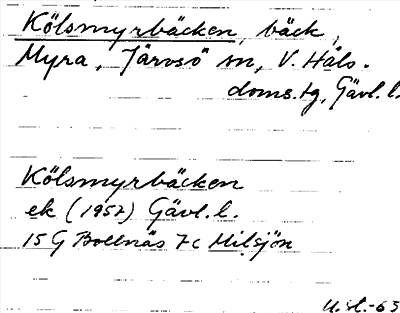 Kölsmyrbäcken, bäck,
Myra, Järvsö sn, V. Häls.
doms.tg, Gävl. l.
Kölsmyrbäcken
ek (1957) Gävl. l.
15 G Bollnäs 7c Milsjön
U.st.-65